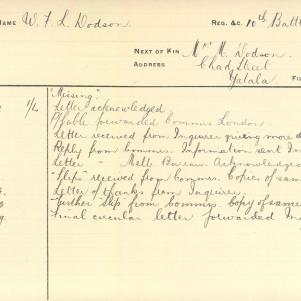 NAME W. F. L. Dodson
REG. &C. 10th Batt
NEXT OF KIN Mrs M. Dodson
ADDRESS Chad Street
Yatala
FI
"Missing"
1/4 Letter acknowledged
forwarded Commrs London.
Letter received from Inquirer giving more d
Reply from Commrs. Information sent In
Letter " Melb Bureau. Acknowledged
"Slips" received from Commrs. Copies of same
Letter of thanks from Inquirer.
"Further" slip from Commrs. Copy of same
Final circular letter forwarded In